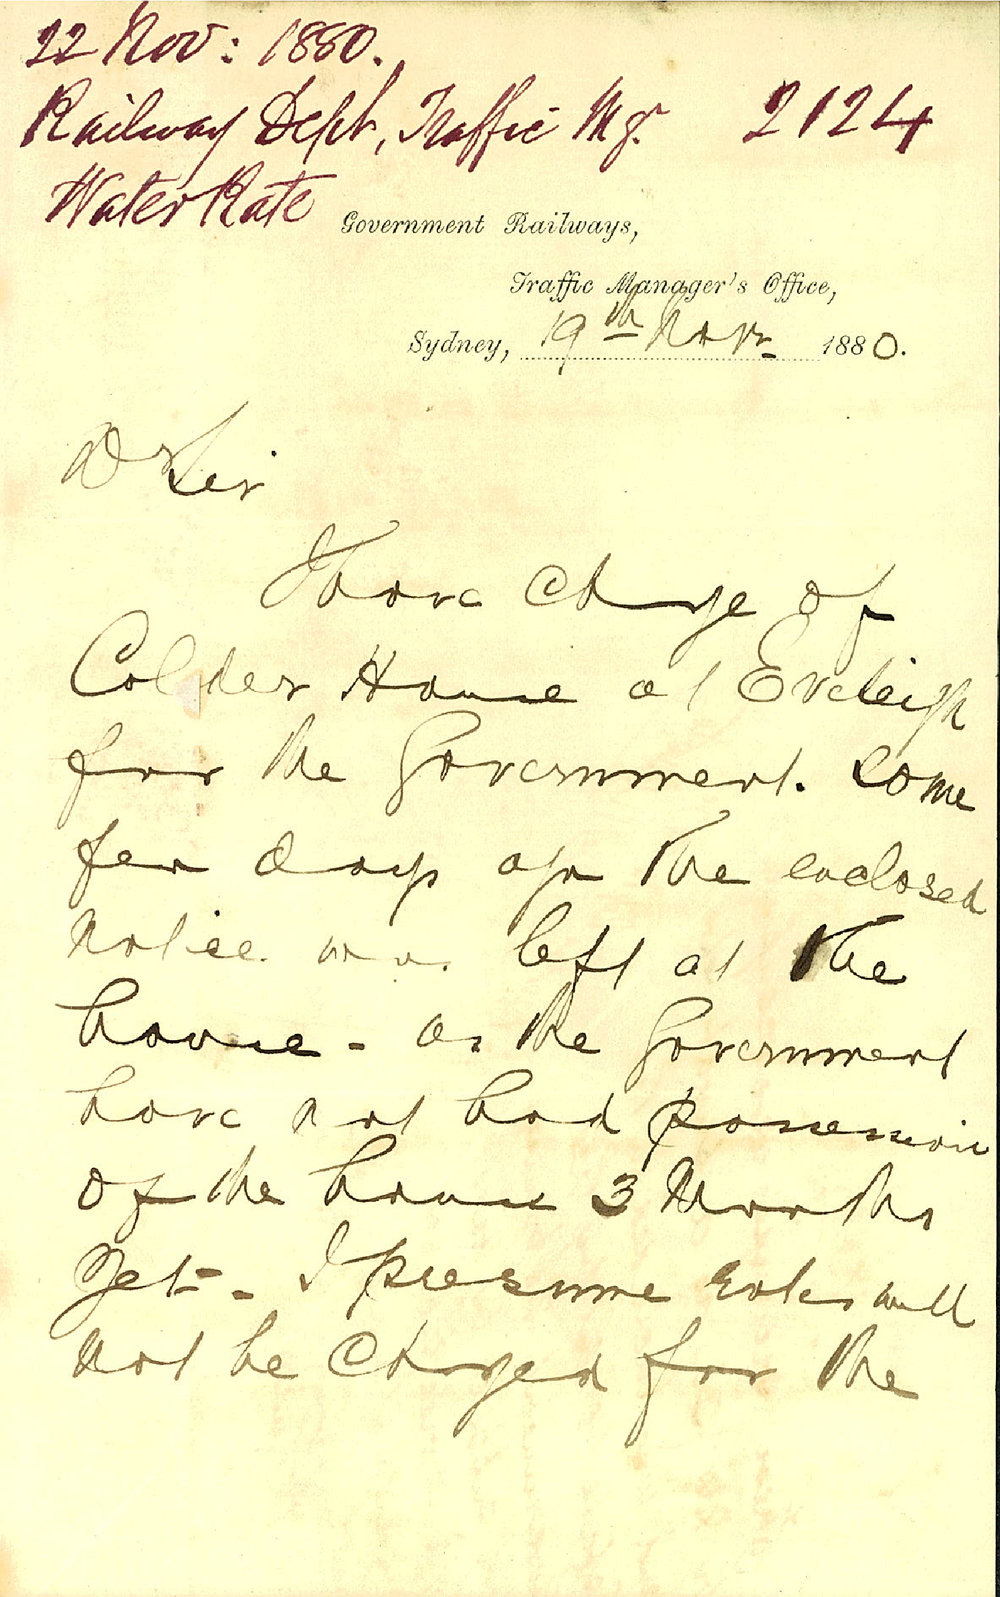 22 Nov: 1880.
Railway Dept, Traffic Mgr. 2124
Water Rate
Government Railways,
Traffic Manager's Office,
Sydney, 19th Novr 1880.
Dr Sir
I have charge of
Calder House at Eveleigh
for the Government. Some
few days ago the enclosed
notice was left at the
house - as the Government
have not had possession
of the house 3 Months
yet - I presume rates will
not be charged for the